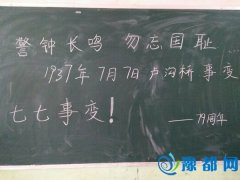 警钟长鸣 勿忘国耻...
1937年7月7日卢沟桥事变
七七事变!
——79周年
豫都网